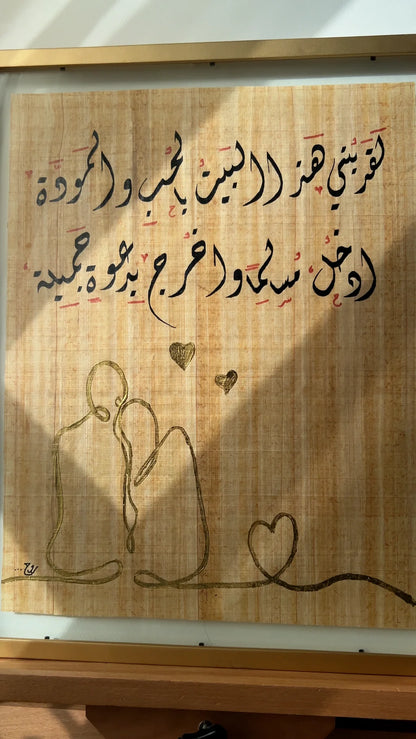 لَقَد بُنيَ هَذا البَيتُ بِالحُبِ والمَوَدَّة
ادخُل مُسلِمًا واخرُج بِدَعوةٍ جَمِيلة